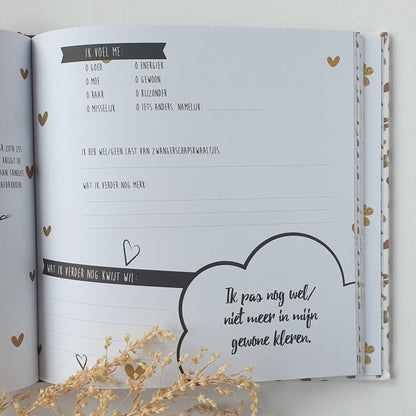 R 20'N ZES
KRIJGT DE
AAN TANDJES
AFDRUKKEN
IK VOEL ME:
O GOED O ENERGIEK
O MOE O GEWOON
O RAAR O BIJZONDER
O MISSELIJK O IETS ANDERS, NAMELIJK
IK HEB WEL/GEEN LAST VAN ZWANGERSCHAPSKWAALTJES.
WAT IK VERDER NOG MERK:
WAT IK VERDER NOG KWIJT WIL:
Ik pas nog wel/
niet meer in mijn
gewone kleren.